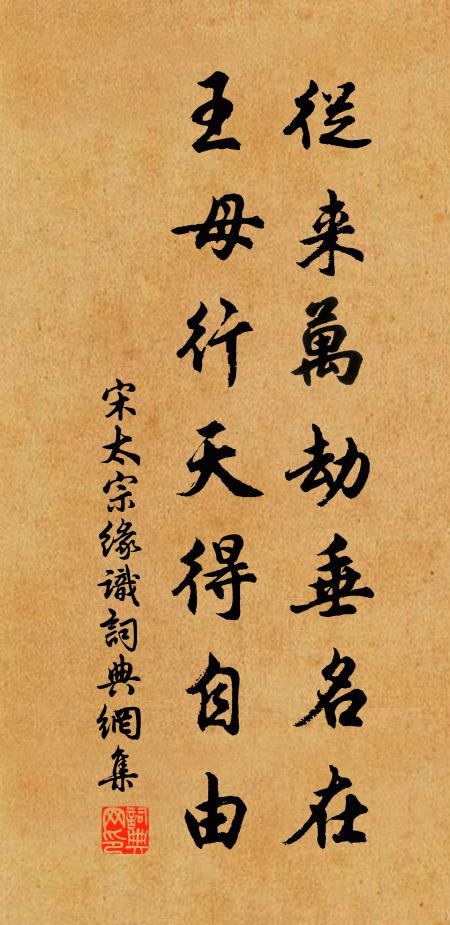 從来萬劫垂名在
王母行天得自由
宋太宗緣識詞典網集
詞典網印